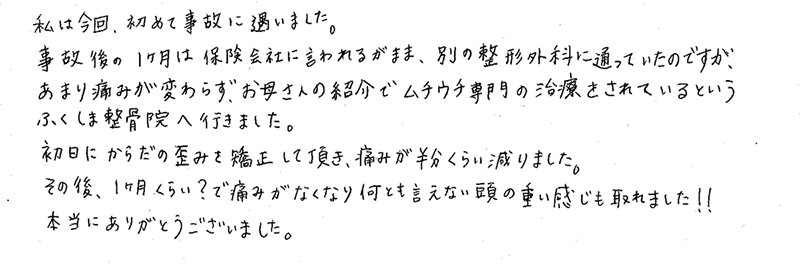 私は今回、初めて事故に遇いました。
事故後の1ヶ月は保険会社に言われるがまま、別の整形外科に通っていたのですが、
あまり痛みが変わらず、お母さんの紹介でムチウチ専門の治療をされているという
ふくしま整骨院へ行きました。
初日にからだの歪みを矯正して頂き、痛みが半分くらい減りました。
その後、1ヶ月くらい?で痛みがなくなり何とも言えない頭の重い感じも取れました!!
本当にありがとうございました。